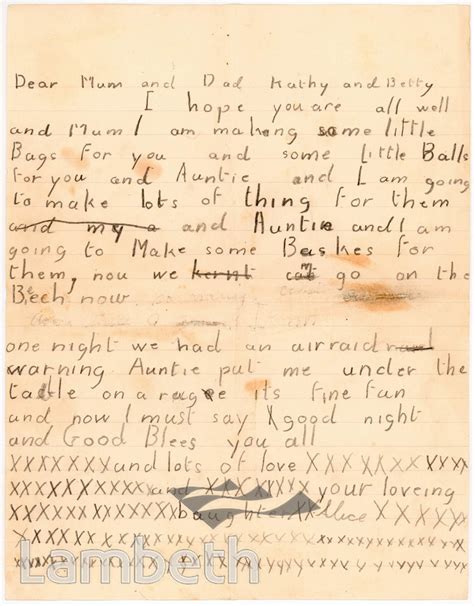 Dear Mum and Dad Kathy and Betty
I hope you are all well
and Mum I am making some little
Bags for you and some little Balls
for you and Auntie and I am going
to make lots of thing for them
and my a and Auntie and I am
going to Make some Baskes for
them, now we kernt cat go on the
Bech now
one night we had an airraid
warning Auntie put me under the
table on a rug it's fine fun
and now I must say good night
and Good Blees you all
XXXXXXX and lots of love XXXXXXXXX
XXXXXXXX and XXXXXXX your loveing
XXXXXXXXXXX Daughter XX Alice XXXXX
Lambeth